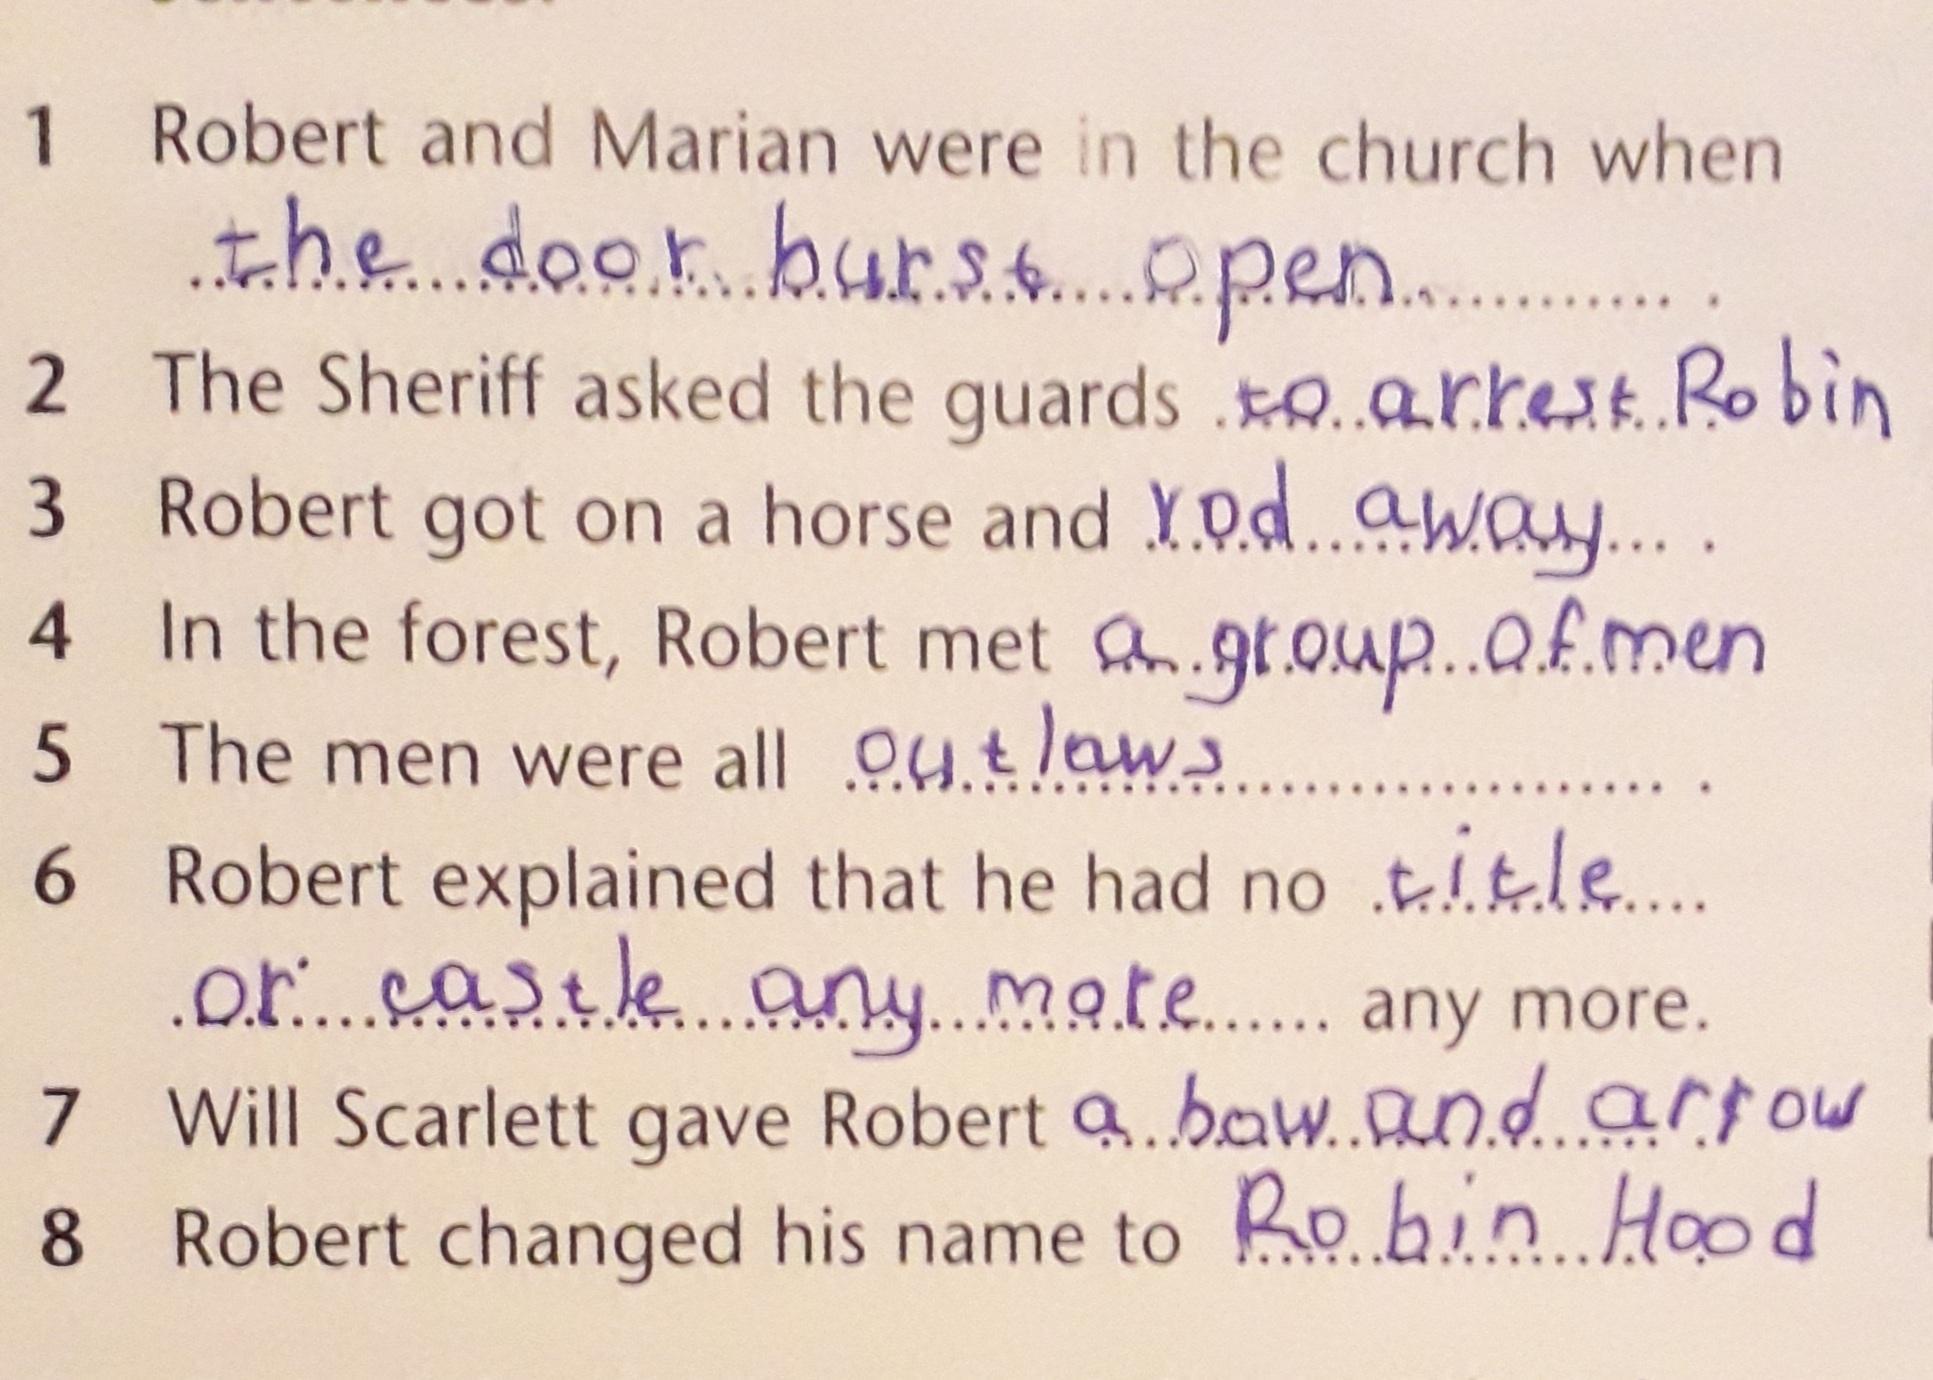 1 Robert and Marian were in the church when
the door burst open .
2 The Sheriff asked the guards to arrest Robin
3 Robert got on a horse and rod away .
4 In the forest, Robert met a group of men
5 The men were all outlaws .
6 Robert explained that he had no title
or castle any more any more.
7 Will Scarlett gave Robert a bow and arrow
8 Robert changed his name to Robin Hood